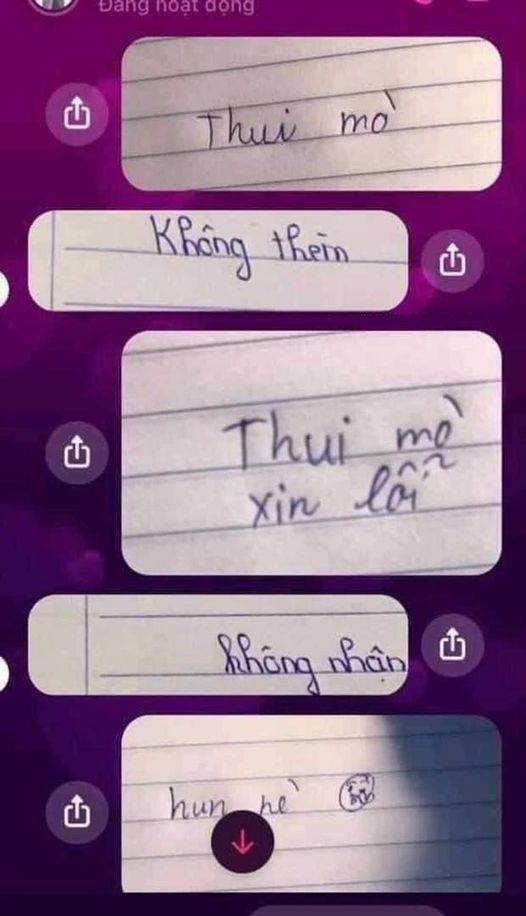 Đang hoạt động
Thui mò
Không thèm
Thui mò
xin lỗi
không nhận
hun hè